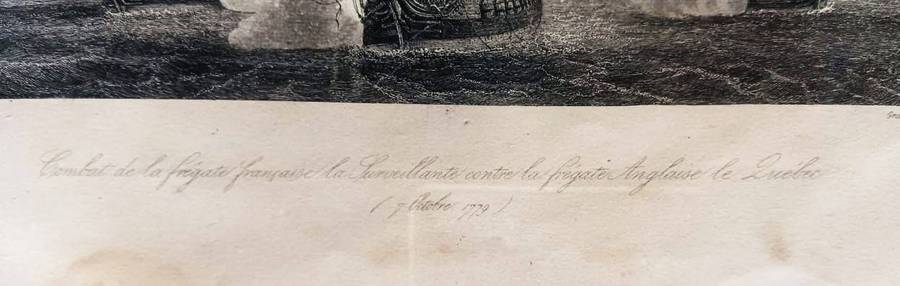 Combat de la frégate française la Surveillante contre la frégate Anglaise le Québec
( 7 Octobre 1779 )